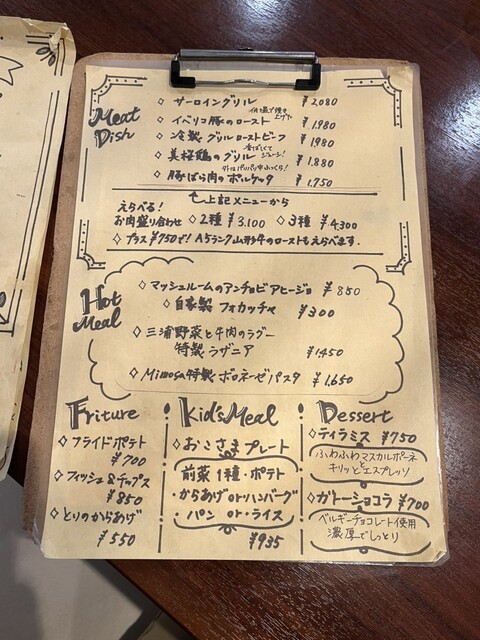 Meat
Dish
◇ サーロイングリル ¥2.080
◇ イベリコ豚のロースト ¥1.980
◇ 冷製 グリルローストビーフ ¥1980
◇ 美桜鶏のグリル ¥1.880
香ばしくて
ジューシー!
◇ 豚ばら肉のポルケッタ ¥1.750
外はパリパリ中ふっくら!
上記メニューから
えらべる!
お肉盛り合わせ ◇2種 ¥3.100 ◇3種 ¥4,300
◇プラス¥750で! A5ランク山形牛のローストもえらべます.
Hot
Meal
◇ マッシュルームのアンチョビアヒージョ ¥850
◇ 自家製 フォカッチャ ¥300
◇ 三浦野菜と牛肉のラグー
特製 ラザニア ¥1450
◇ Mimosa特製 ボロネーゼパスタ ¥1.650
Friture
◇フライドポテト
¥700
◇フィッシュ&チップス
¥850
◇とりのからあげ
¥550
Kid'sMeal
◇おこさまプレート
前菜1種・ポテト
・からあげorハンバーグ
・パン or・ライス
¥935
Dessert
◇ティラミス ¥750
ふわふわマスカルポーネ
と
キリッとエスプレッソ
◇ガトーショコラ ¥700
ベルギーチョコレート使用
濃厚でしっとり